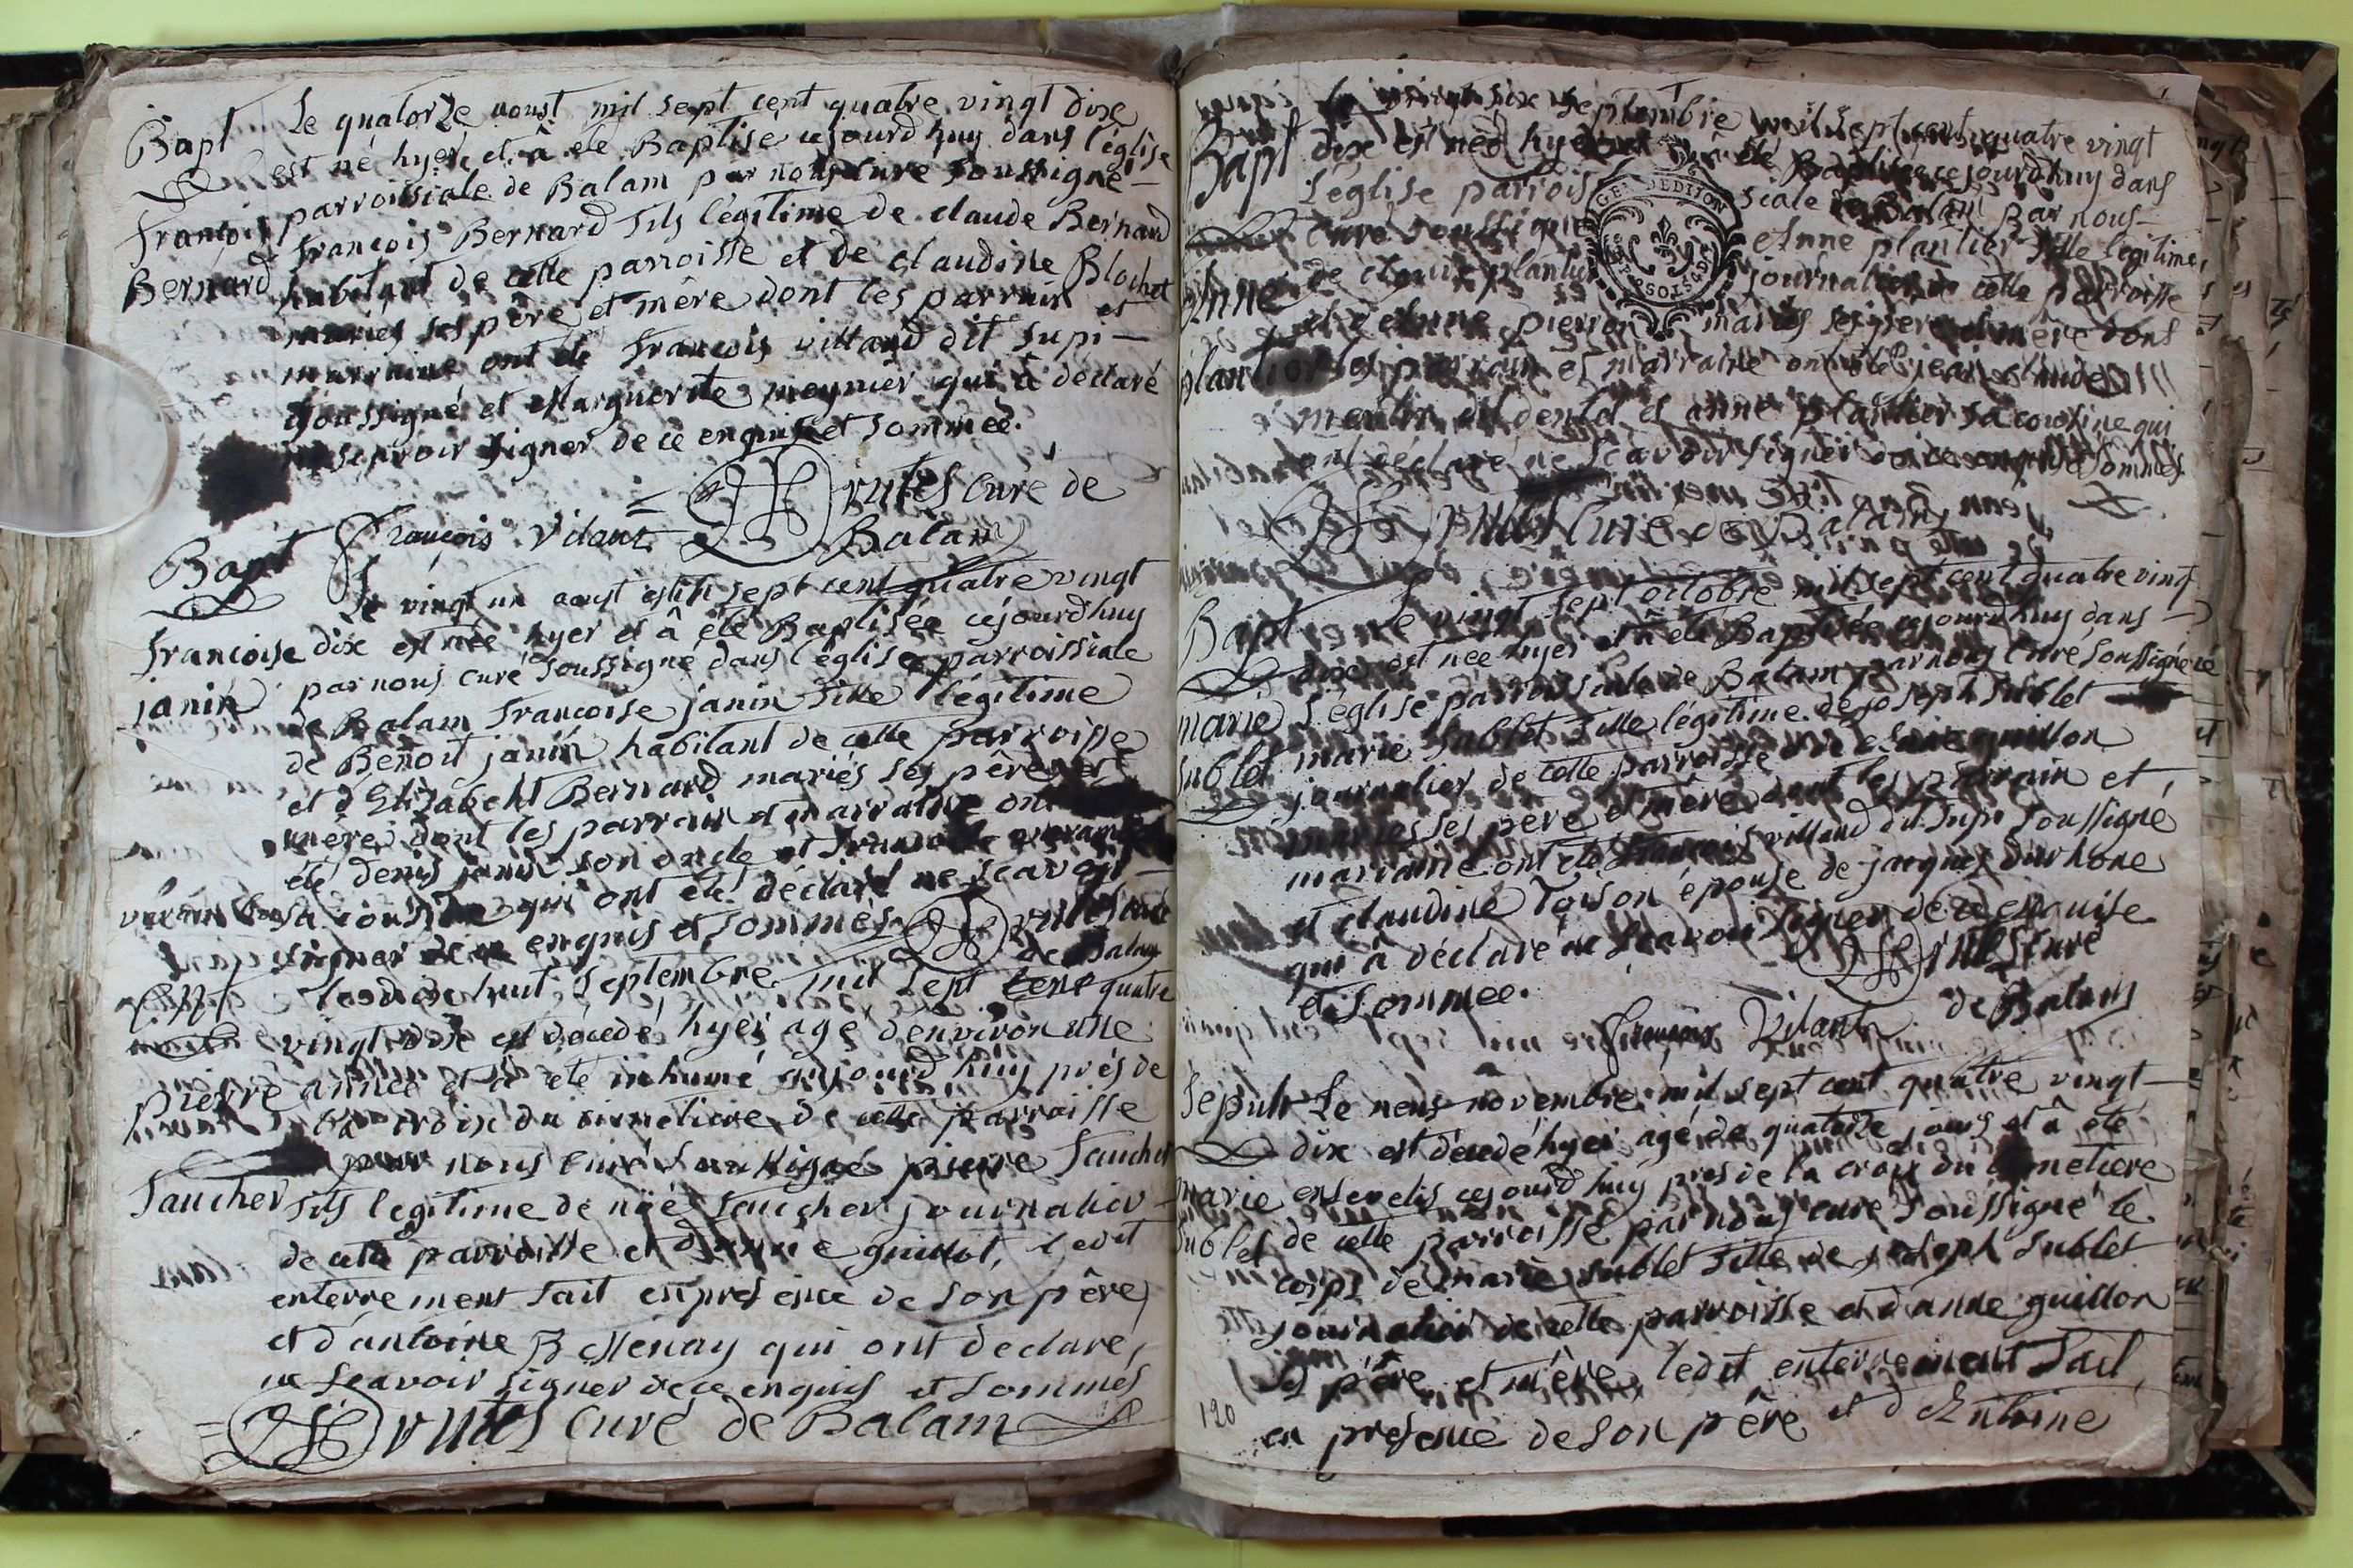 Bapt Le quatorze aoust mil sept cent quatre vingt dixe
est né hyer et â eté Baptisé cejourd'huy dans l'église
parroissiale de Balam par nous curé soussigné
François françois Bernard fils légitime de claude Bernard
Bernard habitant de cette parroisse et de claudine Blochet
mariés ses père et mère dont les parrain et
marraine ont été françois villand dit supi
soussigné et Marguerite moynier qui â déclaré
sçavoir signer de ce enquise et sommée.
curé de
François Vilant Balam
Bapt Le vingt un aoust mil sept cent quatre vingt
françoise dix est née hyer et â été Baptisée cejourd'huy
par nous curé soussigné dans l'église parroissiale
janin de Balam françoise janin fille légitime
de Benoit janin habitant de cette parroisse
et d'Elizabeht Bernard mariés ses père et
mère dont les parrain et marraine ont
été denis janin son oncle et
sa cousine qui ont été déclaré ne scavoir
signer de ce enquis et sommés curé
de Balam
Le dixe huit septembre mil sept cent quatre
vingt dixe est décedé hyer agé d'environ une
pierre année et â eté inhumé cejourd'huy près de
la croix du cimetiere de cette parroisse
par nous curé soussigné pierre faucher
faucher fils legitime de noé faucher journalier
de cette parroisse et guillot, ledit
enterrement fait en présence de son père
et d'antoine Bellenay qui ont declaré,
ne scavoir signer de ce enquis et sommés
curé de Balam
Le vingt sixe septembre mil sept cent quatre vingt
Bapt dixe est née hyer et â été Baptisée cejourd'huy dans
l'église parroissiale de Balam par nous
curé soussigné Anne plantier fille légitime
Anne de plantier journalier de cette parroisse
et d'Anne pierron mariés ses père et mère dont
plantier les parrain et marraine ont été jean claude
et anne plantier sa cousine qui
ont déclaré ne scavoir signer de ce enquis et sommés
curé de Balam
Bapt Le vingt sept octobre mil sept cent quatre vingt
dixe est née hyer et â été Baptisée cejourd'huy dans
marie l'église parroissiale de Balam par nous curé soussigné
sublet marie sublet fille légitime de joseph sublet
journalier de cette parroisse et de guillon
mariés ses père et mère dont les parrain et
marraine ont été françois villand dit supi soussigné
et claudine Toison épouse de jacques durhone
qui â déclaré ne scavoir signer de ce enquise
et sommée. curé
François Vilant de Balam
Sepult Le neuf novembre mil sept cent quatre vingt
dix est décedé hyer agé de quatorze jours et â été
marie ensevelis cejourd'huy près de la croix du cimetiere
sublet de cette parroisse par nous curé soussigné le
corps de marie sublet fille de joseph sublet
journalier de cette parroisse et guillon
ses père et mère, ledit enterrement fait
120 en présence de son père et d'Antoine